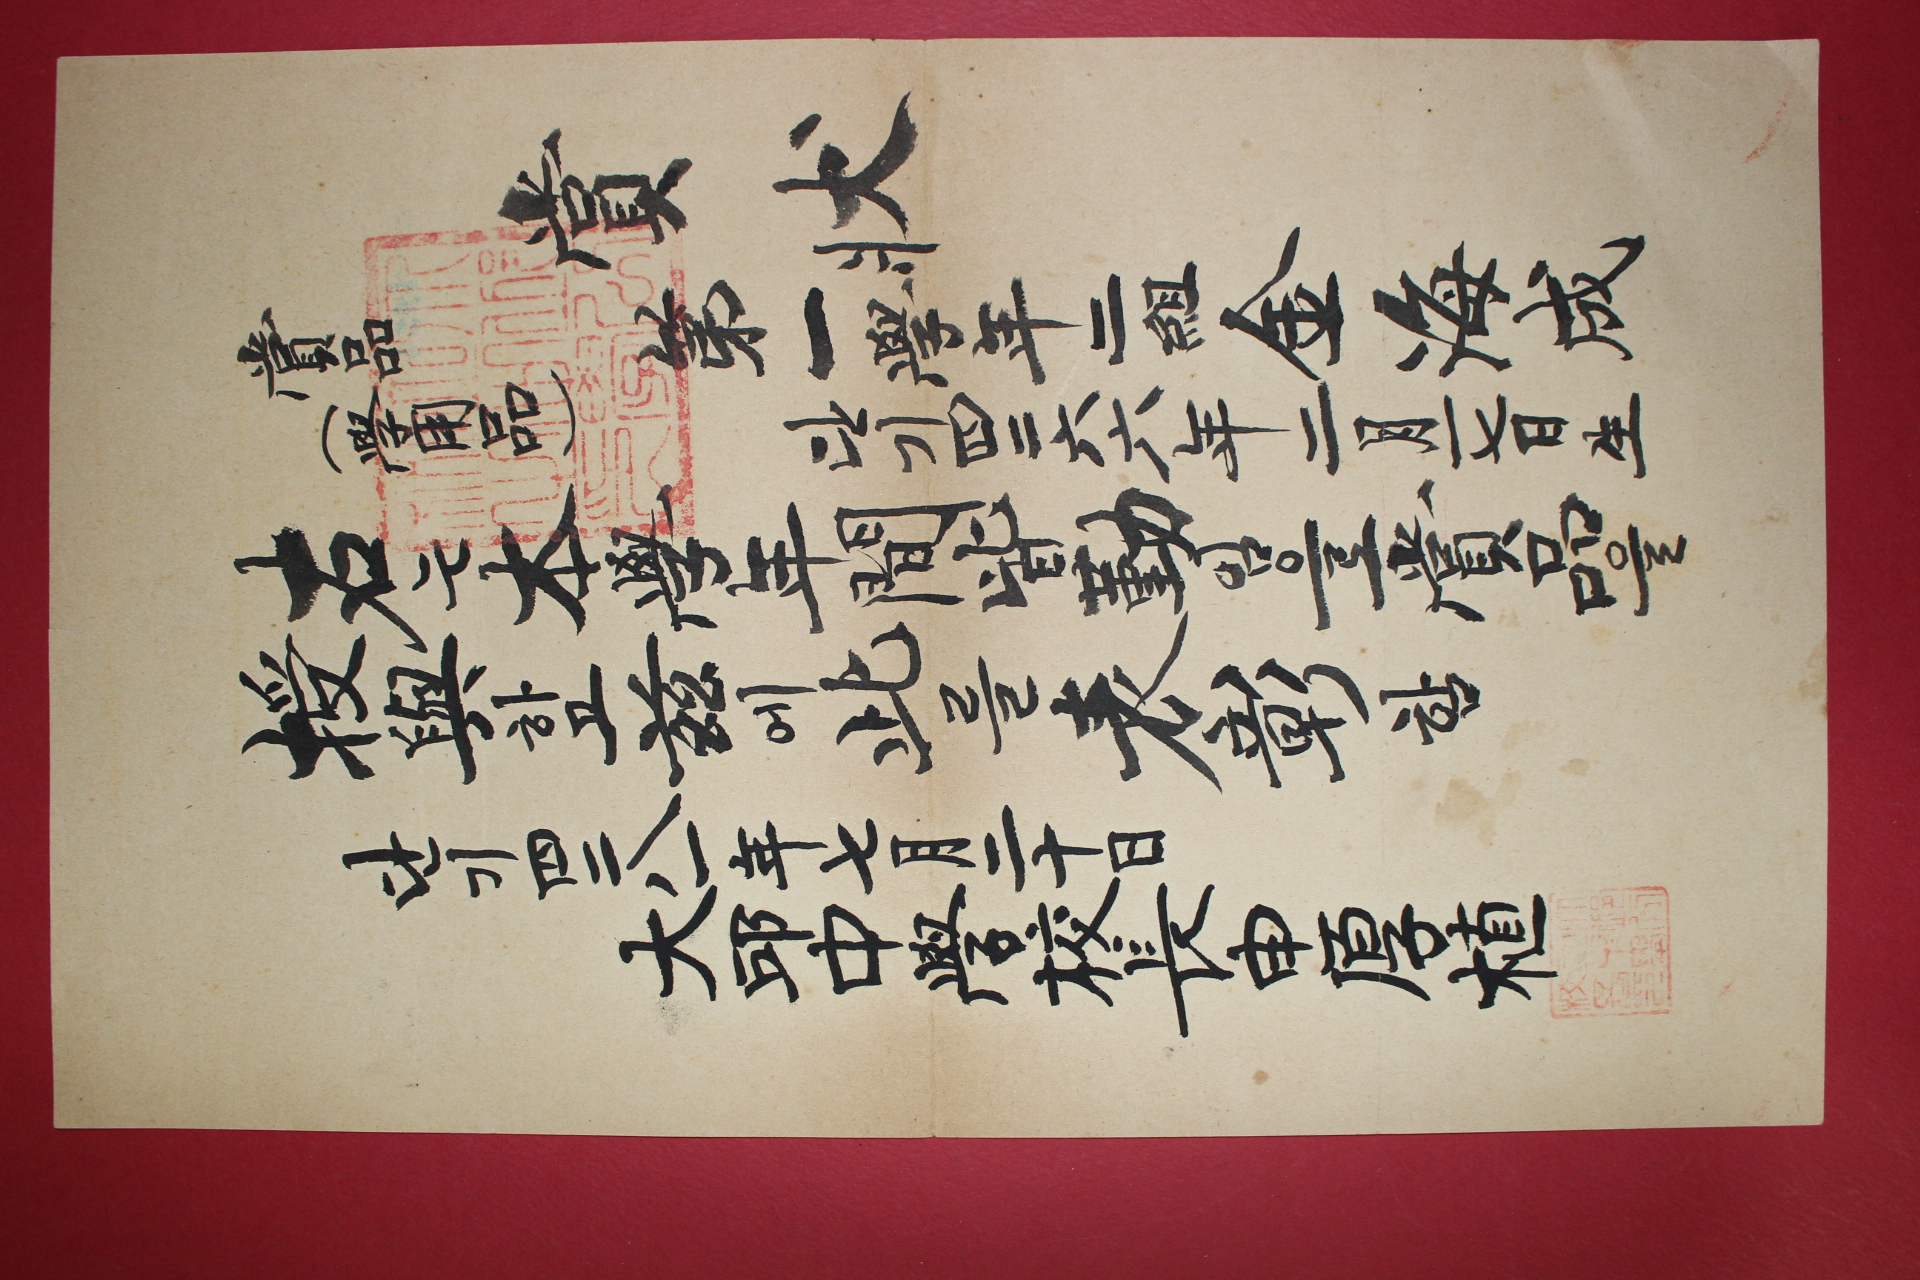 賞狀
賞品
(學用品)
第一學年二組 金海成
단기四二六六年二月一七日生
右는本學年間皆勤임으로賞品을
授與하고玆에此를表彰함
단기四二八一年七月二十日
大邱中學校長申厚植